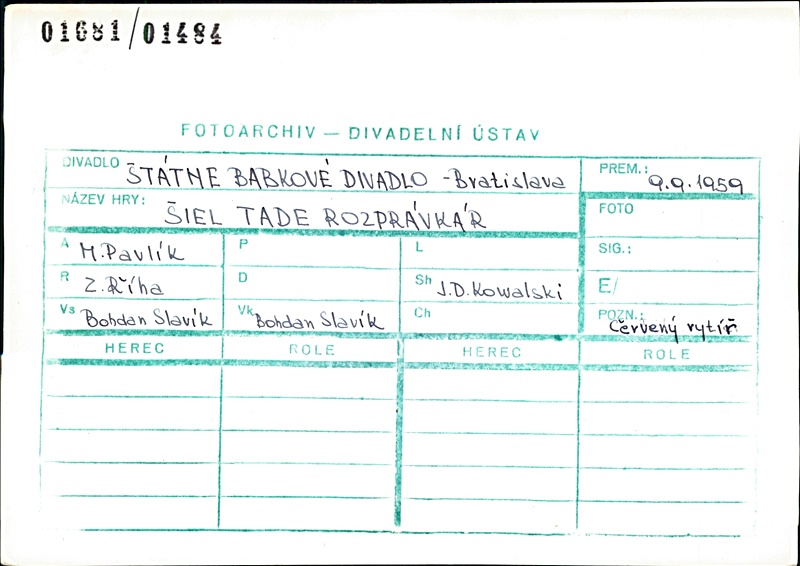 01681/01484
FOTOARCHIV — DIVADELNÍ ÚSTAV
DIVADLO ŠTÁTNE BÁBKOVÉ DIVADLO - Bratislava
PREM.: 9.9.1959
NÁZEV HRY: ŠIEL TADE ROZPRÁVKÁR
FOTO
A M. Pavlík
P
L
SIG.:
R Z. Říha
D
Sh J.D. Kowalski
E/
Vs Bohdan Slavík
Vk Bohdan Slavík
Ch
POZN.: Červený rytíř
HEREC
ROLE
HEREC
ROLE